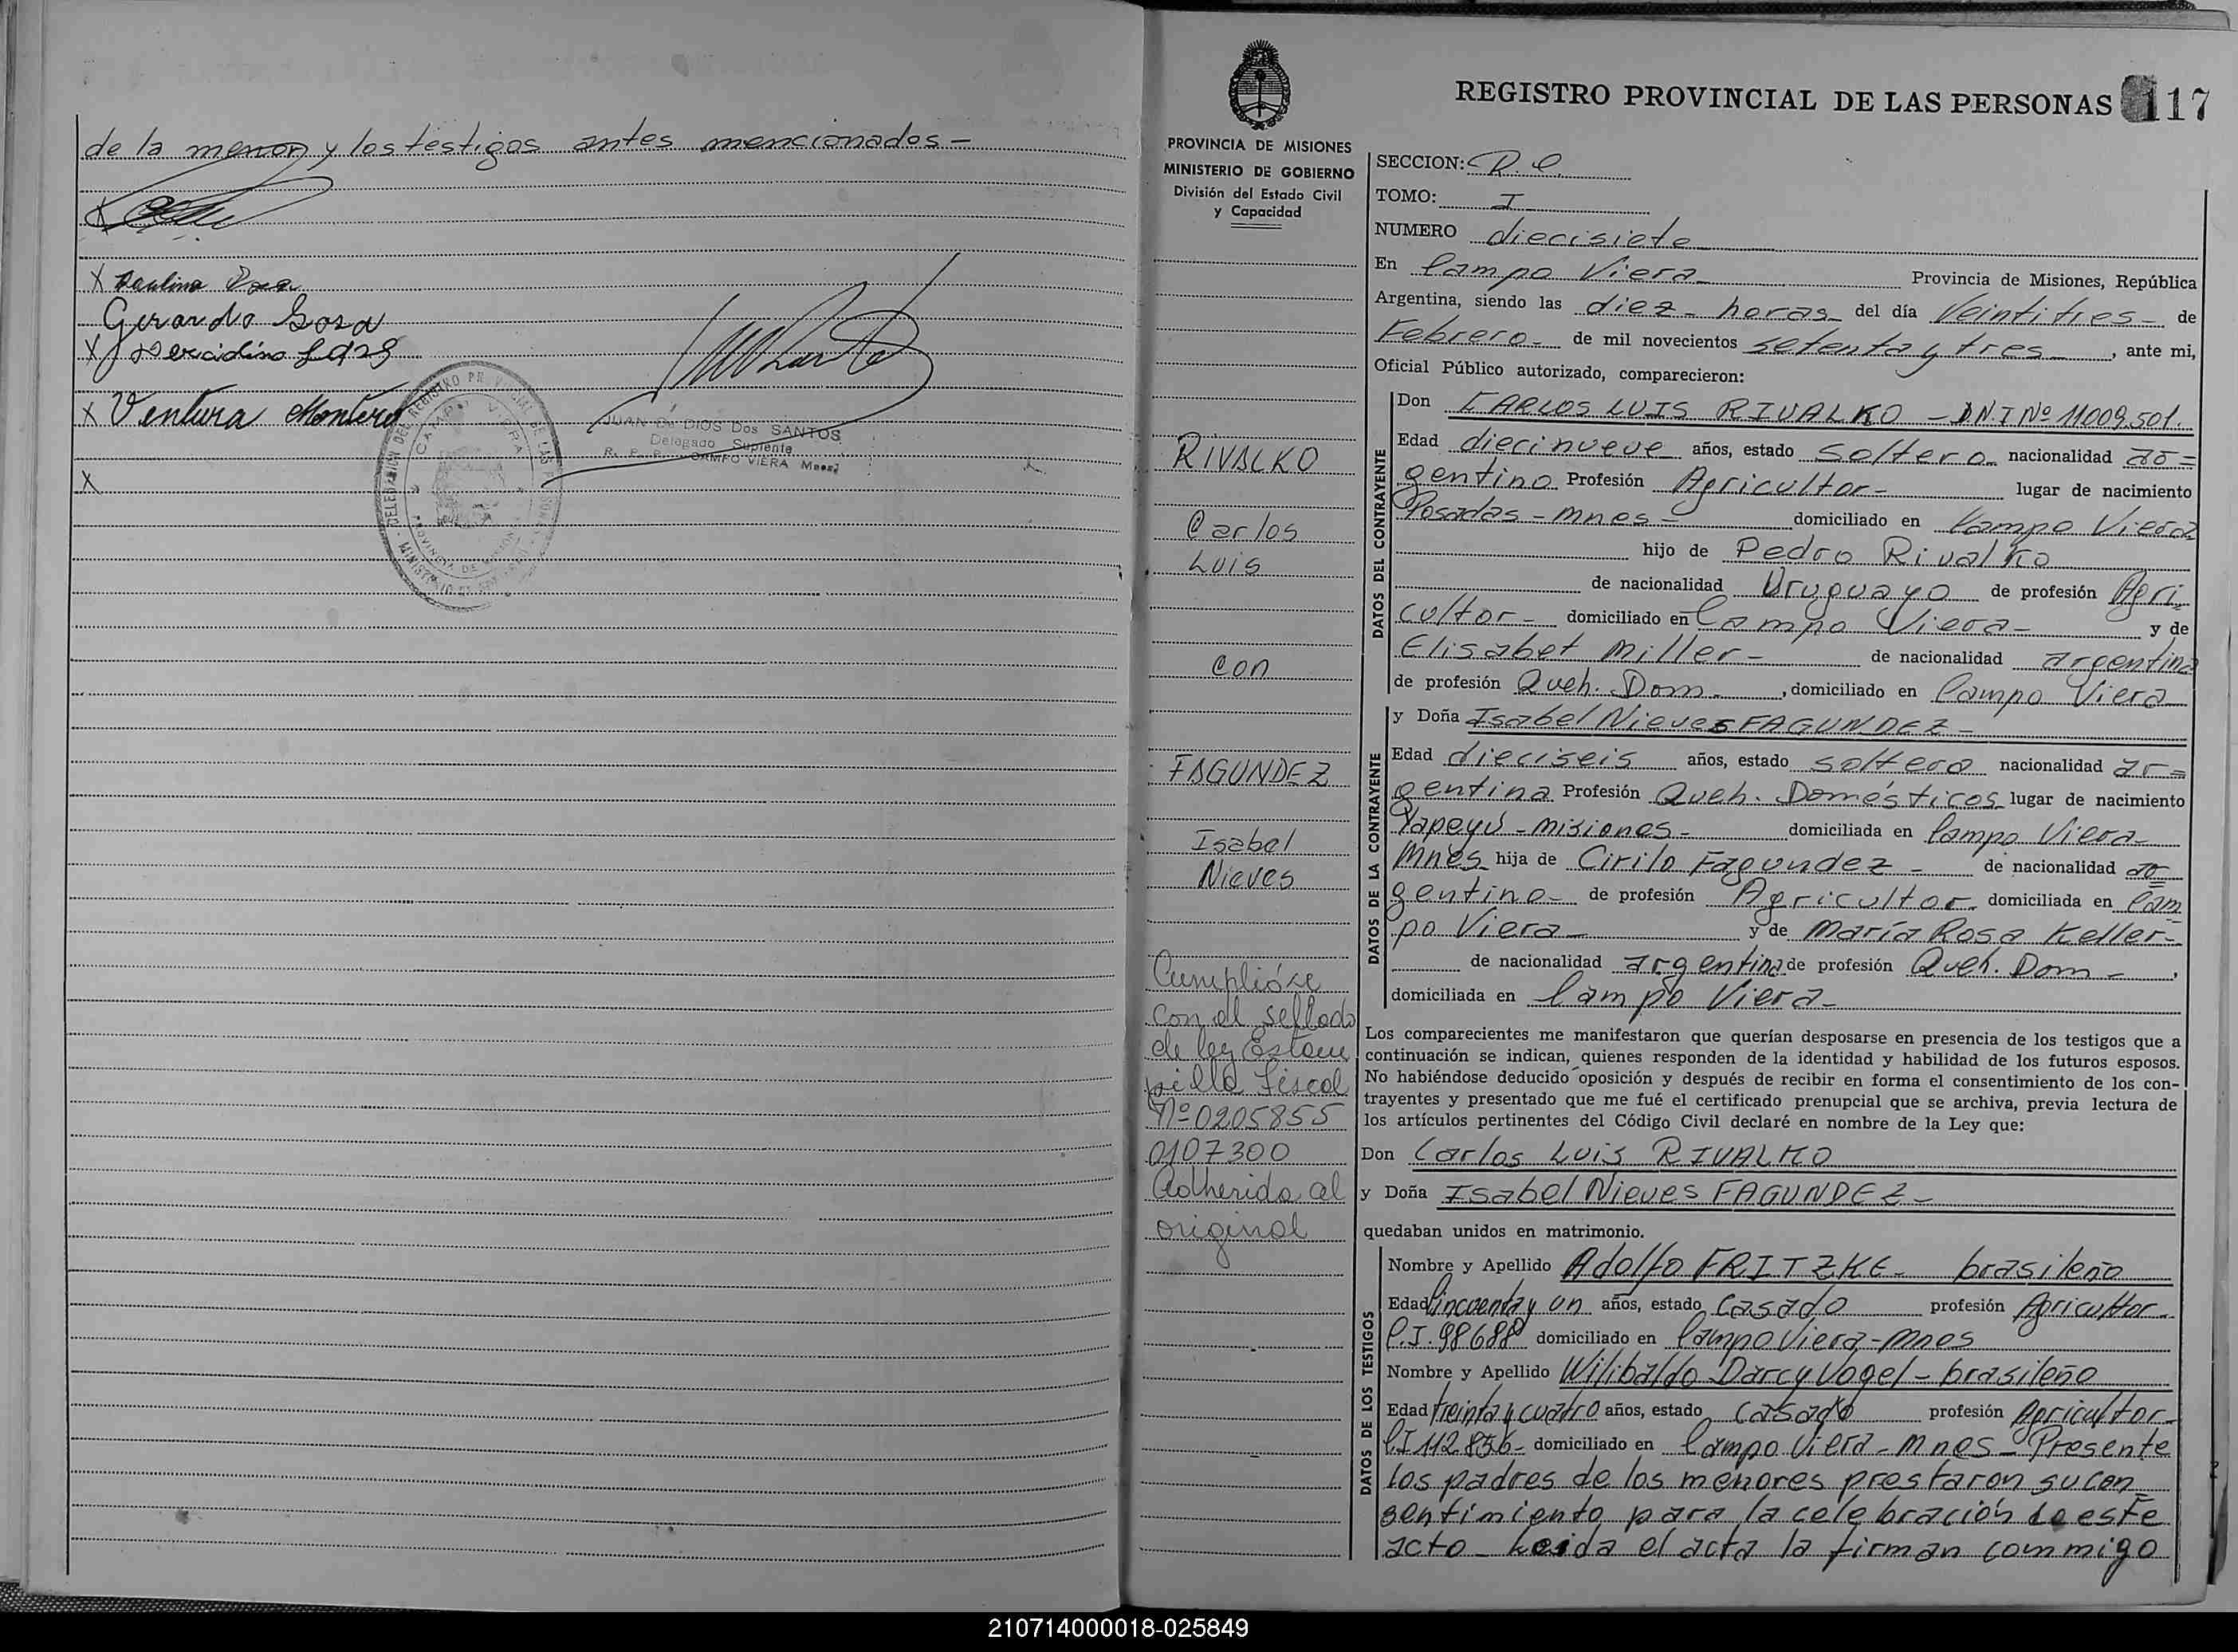 de la menor y los testigos antes mencionados -
X
X Paulina Rosa
Gerardo Sosa
X
X Ventura Montero
X
JUAN De DIOS Dos SANTOS
Delegado Suplente
R. P. P. - CAMPO VIERA Mnes.
DELEGACION DEL REGISTRO PROVINCIAL DE LAS PERSONAS
CAMPO VIERA
PROVINCIA DE MISIONES
MINISTERIO DE GOBIERNO
PROVINCIA DE MISIONES
MINISTERIO DE GOBIERNO
División del Estado Civil
y Capacidad
RIVALKO
Carlos
Luis
Con
FAGUNDEZ
Isabel
Nieves
Cumplióse
con el sellado
de ley Estam
pilla Fiscal
Nº 0205855
0107300
Adherida al
original
REGISTRO PROVINCIAL DE LAS PERSONAS 117
SECCION: R.C.
TOMO: I
NUMERO diecisiete
En Campo Viera Provincia de Misiones, República
Argentina, siendo las diez - horas - del día Veintitres - de
Febrero - de mil novecientos setenta y tres - , ante mi,
Oficial Público autorizado, comparecieron:
DATOS DEL CONTRAYENTE
Don CARLOS LUIS RIVALKO - D.N.I Nº 11009.501.
Edad diecinueve años, estado Soltero nacionalidad ar=
gentino Profesión Agricultor - lugar de nacimiento
Posadas - Mnes - domiciliado en Campo Viera
hijo de Pedro Rivalko
de nacionalidad Uruguayo de profesión Agri-
cultor - domiciliado en Campo Viera - y de
Elisabet Miller - de nacionalidad argentina
de profesión Queh. Dom. , domiciliado en Campo Viera
DATOS DE LA CONTRAYENTE
y Doña Isabel Nieves FAGUNDEZ -
Edad dieciseis años, estado soltera nacionalidad ar=
gentina Profesión Queh. Domésticos lugar de nacimiento
Yapeyú - Misiones - domiciliada en Campo Viera -
Mnes hija de Cirilo Fagundez - de nacionalidad ar=
gentino - de profesión Agricultor domiciliada en Cam
po Viera - y de María Rosa Keller -
de nacionalidad argentina de profesión Queh. Dom - ,
domiciliada en Campo Viera -
Los comparecientes me manifestaron que querían desposarse en presencia de los testigos que a
continuación se indican, quienes responden de la identidad y habilidad de los futuros esposos.
No habiéndose deducido oposición y después de recibir en forma el consentimiento de los con-
trayentes y presentado que me fué el certificado prenupcial que se archiva, previa lectura de
los artículos pertinentes del Código Civil declaré en nombre de la Ley que:
Don Carlos Luis RIVALKO
y Doña Isabel Nieves FAGUNDEZ -
quedaban unidos en matrimonio.
DATOS DE LOS TESTIGOS
Nombre y Apellido Adolfo FRITZKE - brasileño
Edad Cincuenta y un años, estado Casado profesión Agricultor -
C.I. 98688 domiciliado en Campo Viera - Mnes
Nombre y Apellido Wilibaldo Darcy Vogel - brasileño
Edad treinta y cuatro años, estado Casado profesión Agricultor -
C.I 112.856 - domiciliado en Campo Viera - Mnes - Presente
los padres de los menores prestaron su con_
sentimiento para la celebración de este
acto - Leida el acta la firman conmigo
210714000018-025849